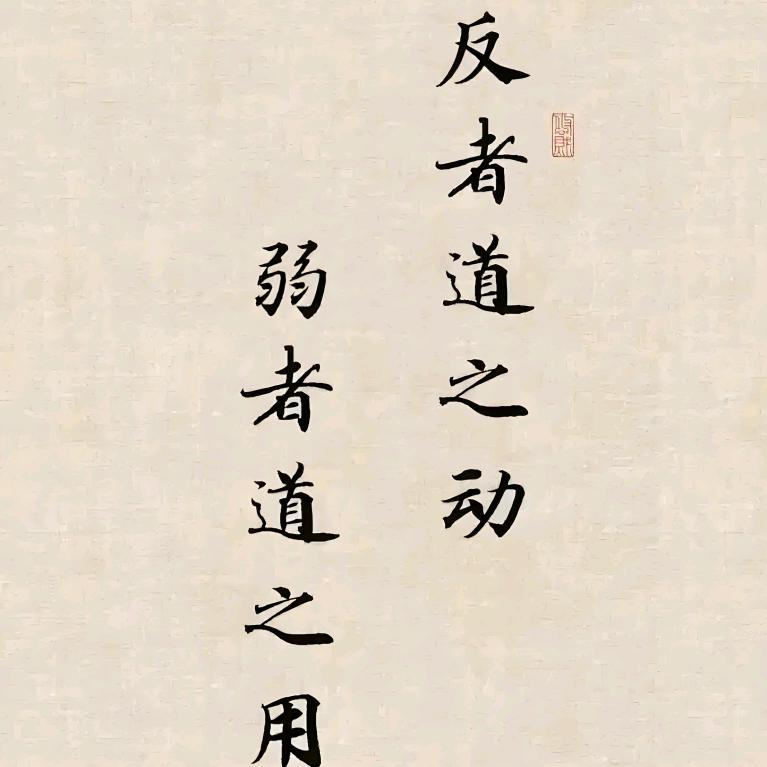 反者道之动
弱者道之用